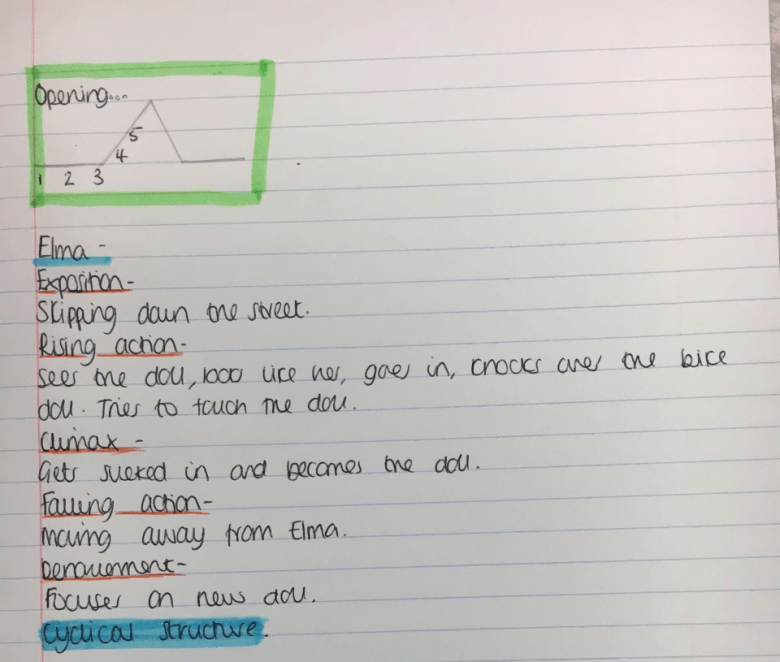 Opening...
5
4
1 2 3
Elma -
Exposition-
Skipping down the street.
Rising action-
Sees the doll, look like her, goes in, knocks over the bike
doll. Tries to touch the doll.
Climax -
Gets sucked in and becomes the doll.
Falling action-
Moving away from Elma.
Denouement-
Focuses on new doll.
Cyclical structure.